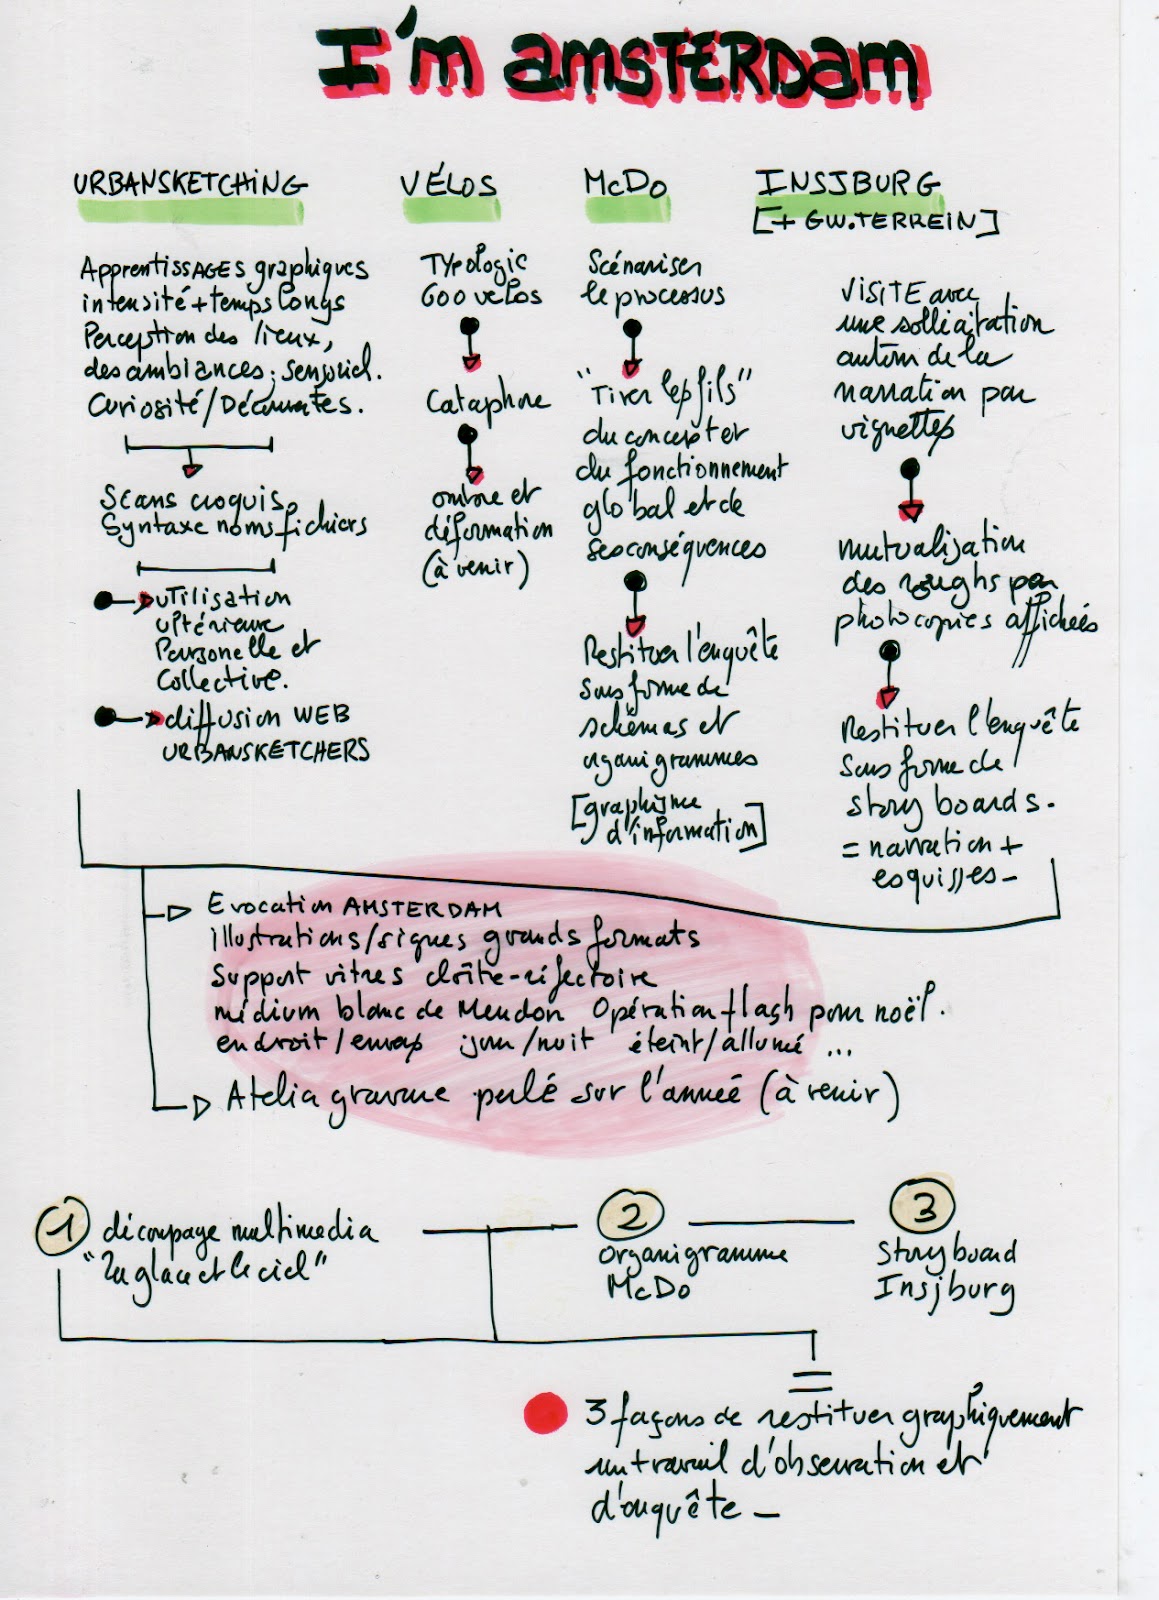 I'm amsterdam
URBANSKETCHING
Apprentissages graphiques
intensité + temps longs
Perception des lieux,
des ambiances; sensoriel.
Curiosité/Découvertes.
Scans croquis,
Syntaxe noms fichiers
utilisation
ultérieure
Personelle et
Collective.
diffusion WEB
URBANSKETCHERS
VÉLOS
Typologie
600 vélos
Cataphore
ombre et
déformation
(à venir)
McDo
Scénariser
le processus
"Tirer les fils"
du concept et
du fonctionnement
global et de
ses conséquences
Restituer l'enquête
sous forme de
schémas et
organigrammes
[graphisme
d'information]
INSJBURG
[+ GW.TERREIN]
VISITE avec
une sollicitation
autour de la
narration par
vignettes
mutualisation
des roughs par
photocopies affichées
Restituer l'enquête
sous forme de
story boards.
= narration +
esquisses_
Evocation AMSTERDAM
illustrations/signes grands formats
Support vitres cloître-réfectoire
médium blanc de Meudon Opération flash pour noël.
endroit/envers jour/nuit éteint/allumé ...
Atelier gravure perlé sur l'année (à venir)
1 découpage multimedia
"La glace et le ciel"
2
organigramme
McDo
3
Storyboard
Insjburg
=
3 façons de restituer graphiquement
un travail d'observation et
d'enquête_